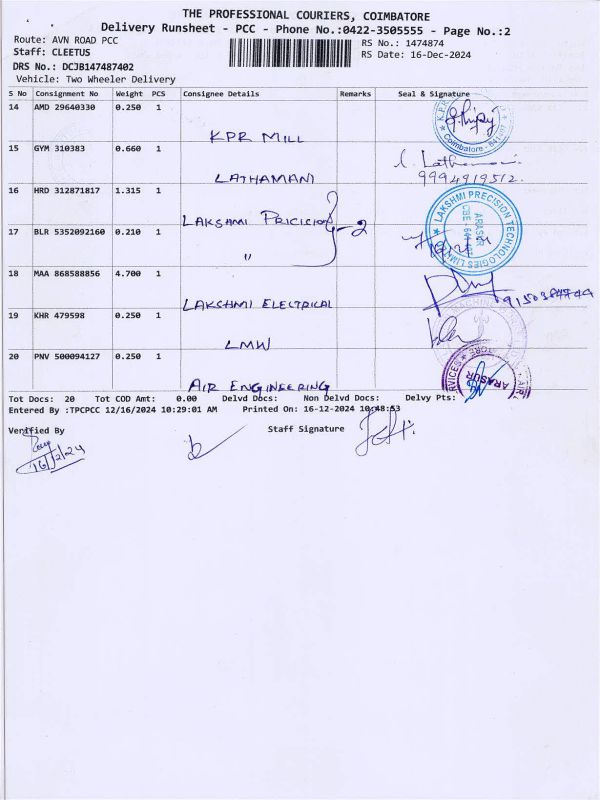 THE PROFESSIONAL COURIERS, COIMBATORE
Delivery Runsheet - PCC - Phone No.:0422-3505555 - Page No.:2
Route: AVN ROAD PCC
RS No.: 1474874
Staff: CLEETUS
RS Date: 16-Dec-2024
DRS No.: DCJB147487402
Vehicle: Two Wheeler Delivery
S No Consignment No Weight PCS Consignee Details Remarks Seal & Signature
14 AMD 29640330 0.250 1
KPR MILL
Coimbatore
15 GYM 310383 0.660 1
LATHAMANI
9994919512.
16 HRD 312871817 1.315 1
LAKSHMI PRICISION -2
LAKSHMI PRECISION TECHNOLOGIES LIMITED
ARASUR
17 BLR 5352092160 0.210 1
"
18 MAA 868588856 4.700 1
LAKSHMI ELECTRICAL
19 KHR 479598 0.250 1
LMW
20 PNV 500094127 0.250 1
AIR ENGINEERING
ARASUR
Tot Docs: 20 Tot COD Amt: 0.00 Delvd Docs: Non Delvd Docs: Delvy Pts:
Entered By :TPCPCC 12/16/2024 10:29:01 AM Printed On: 16-12-2024 10:48:53
Verified By Staff Signature
16/12/24